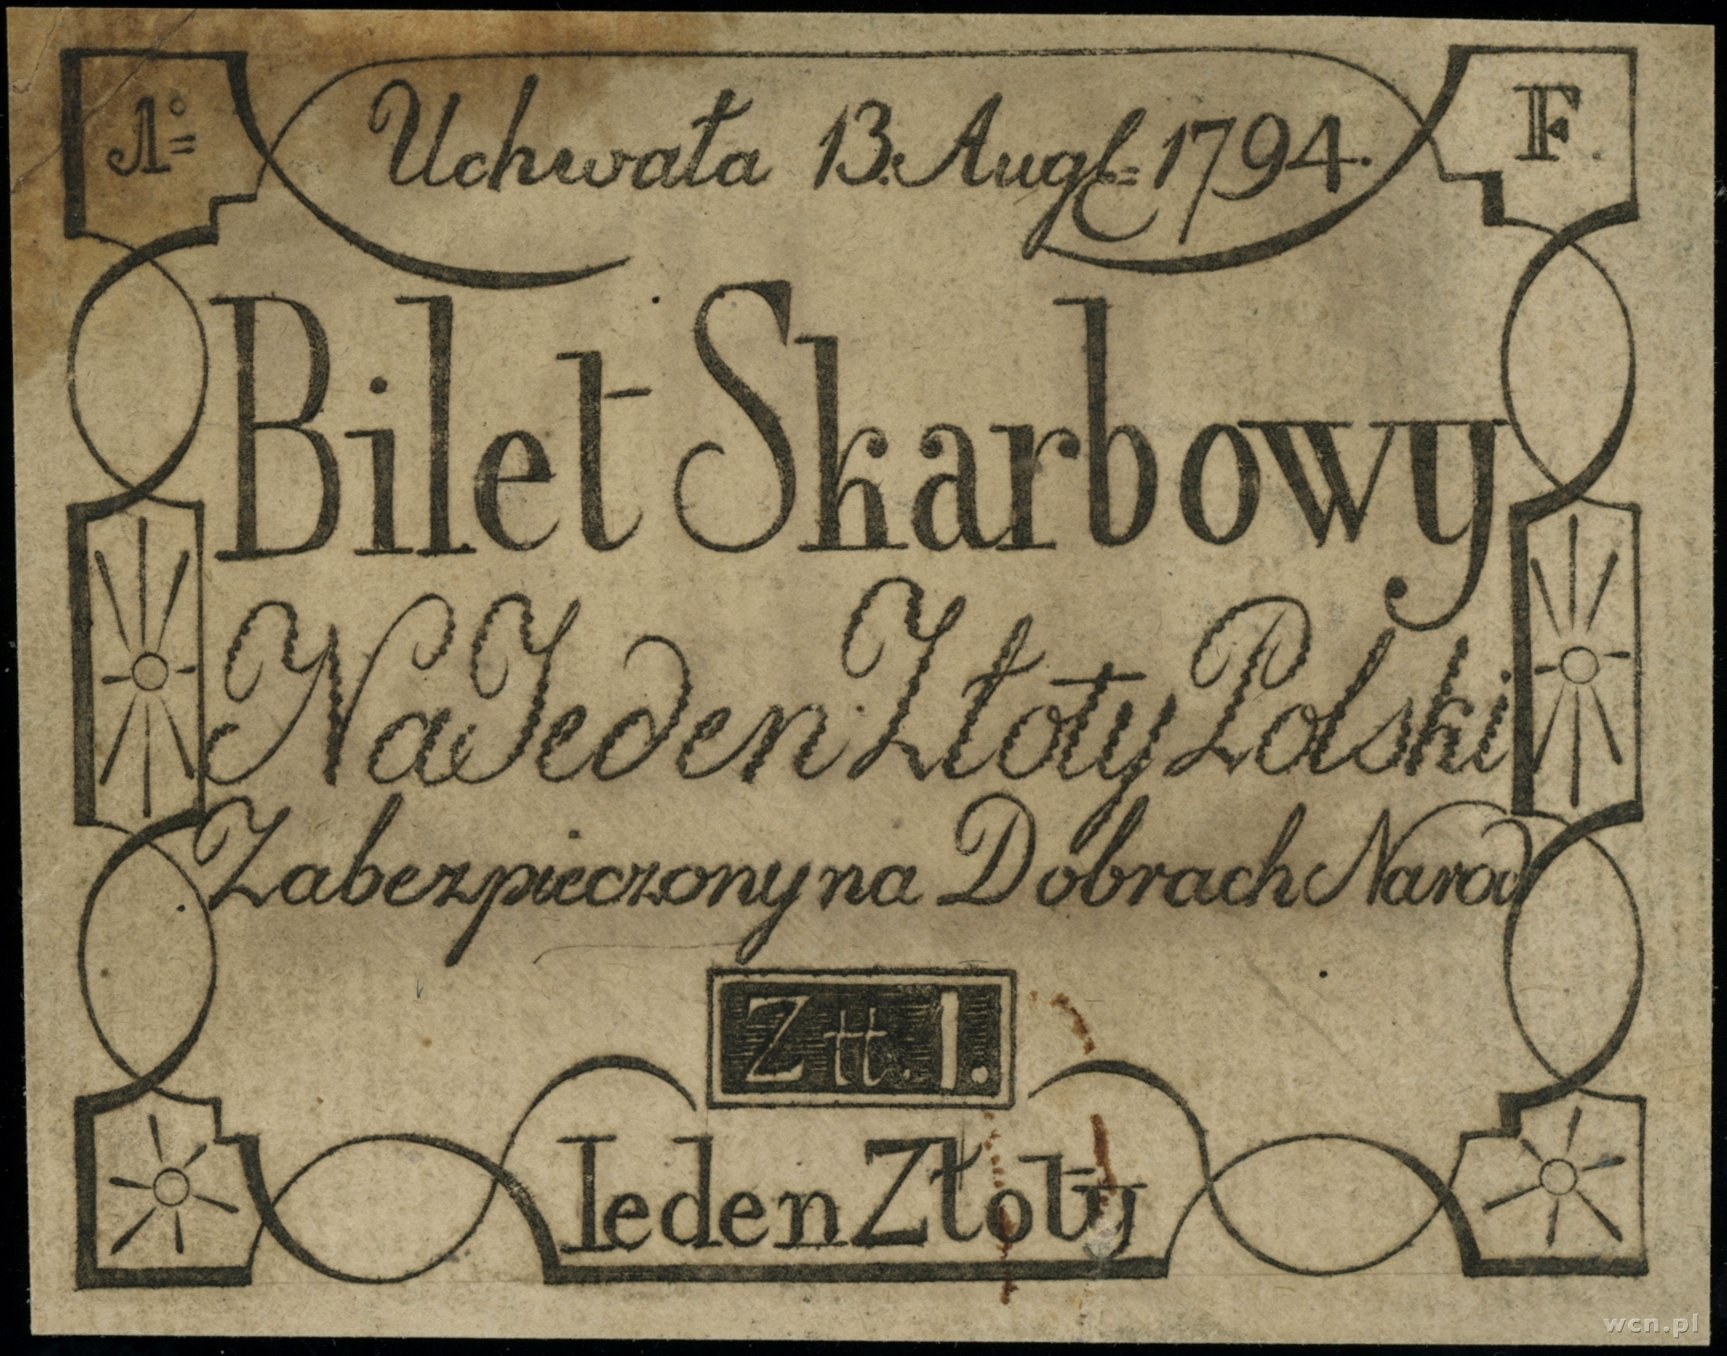 A°= Uchwała 13. Augt= 1794. F.
Bilet Skarbowy
Na Jeden Złoty Polski
Zabezpieczony na Dobrach Narod
Złł. 1.
Ieden Złoty
wcn.pl